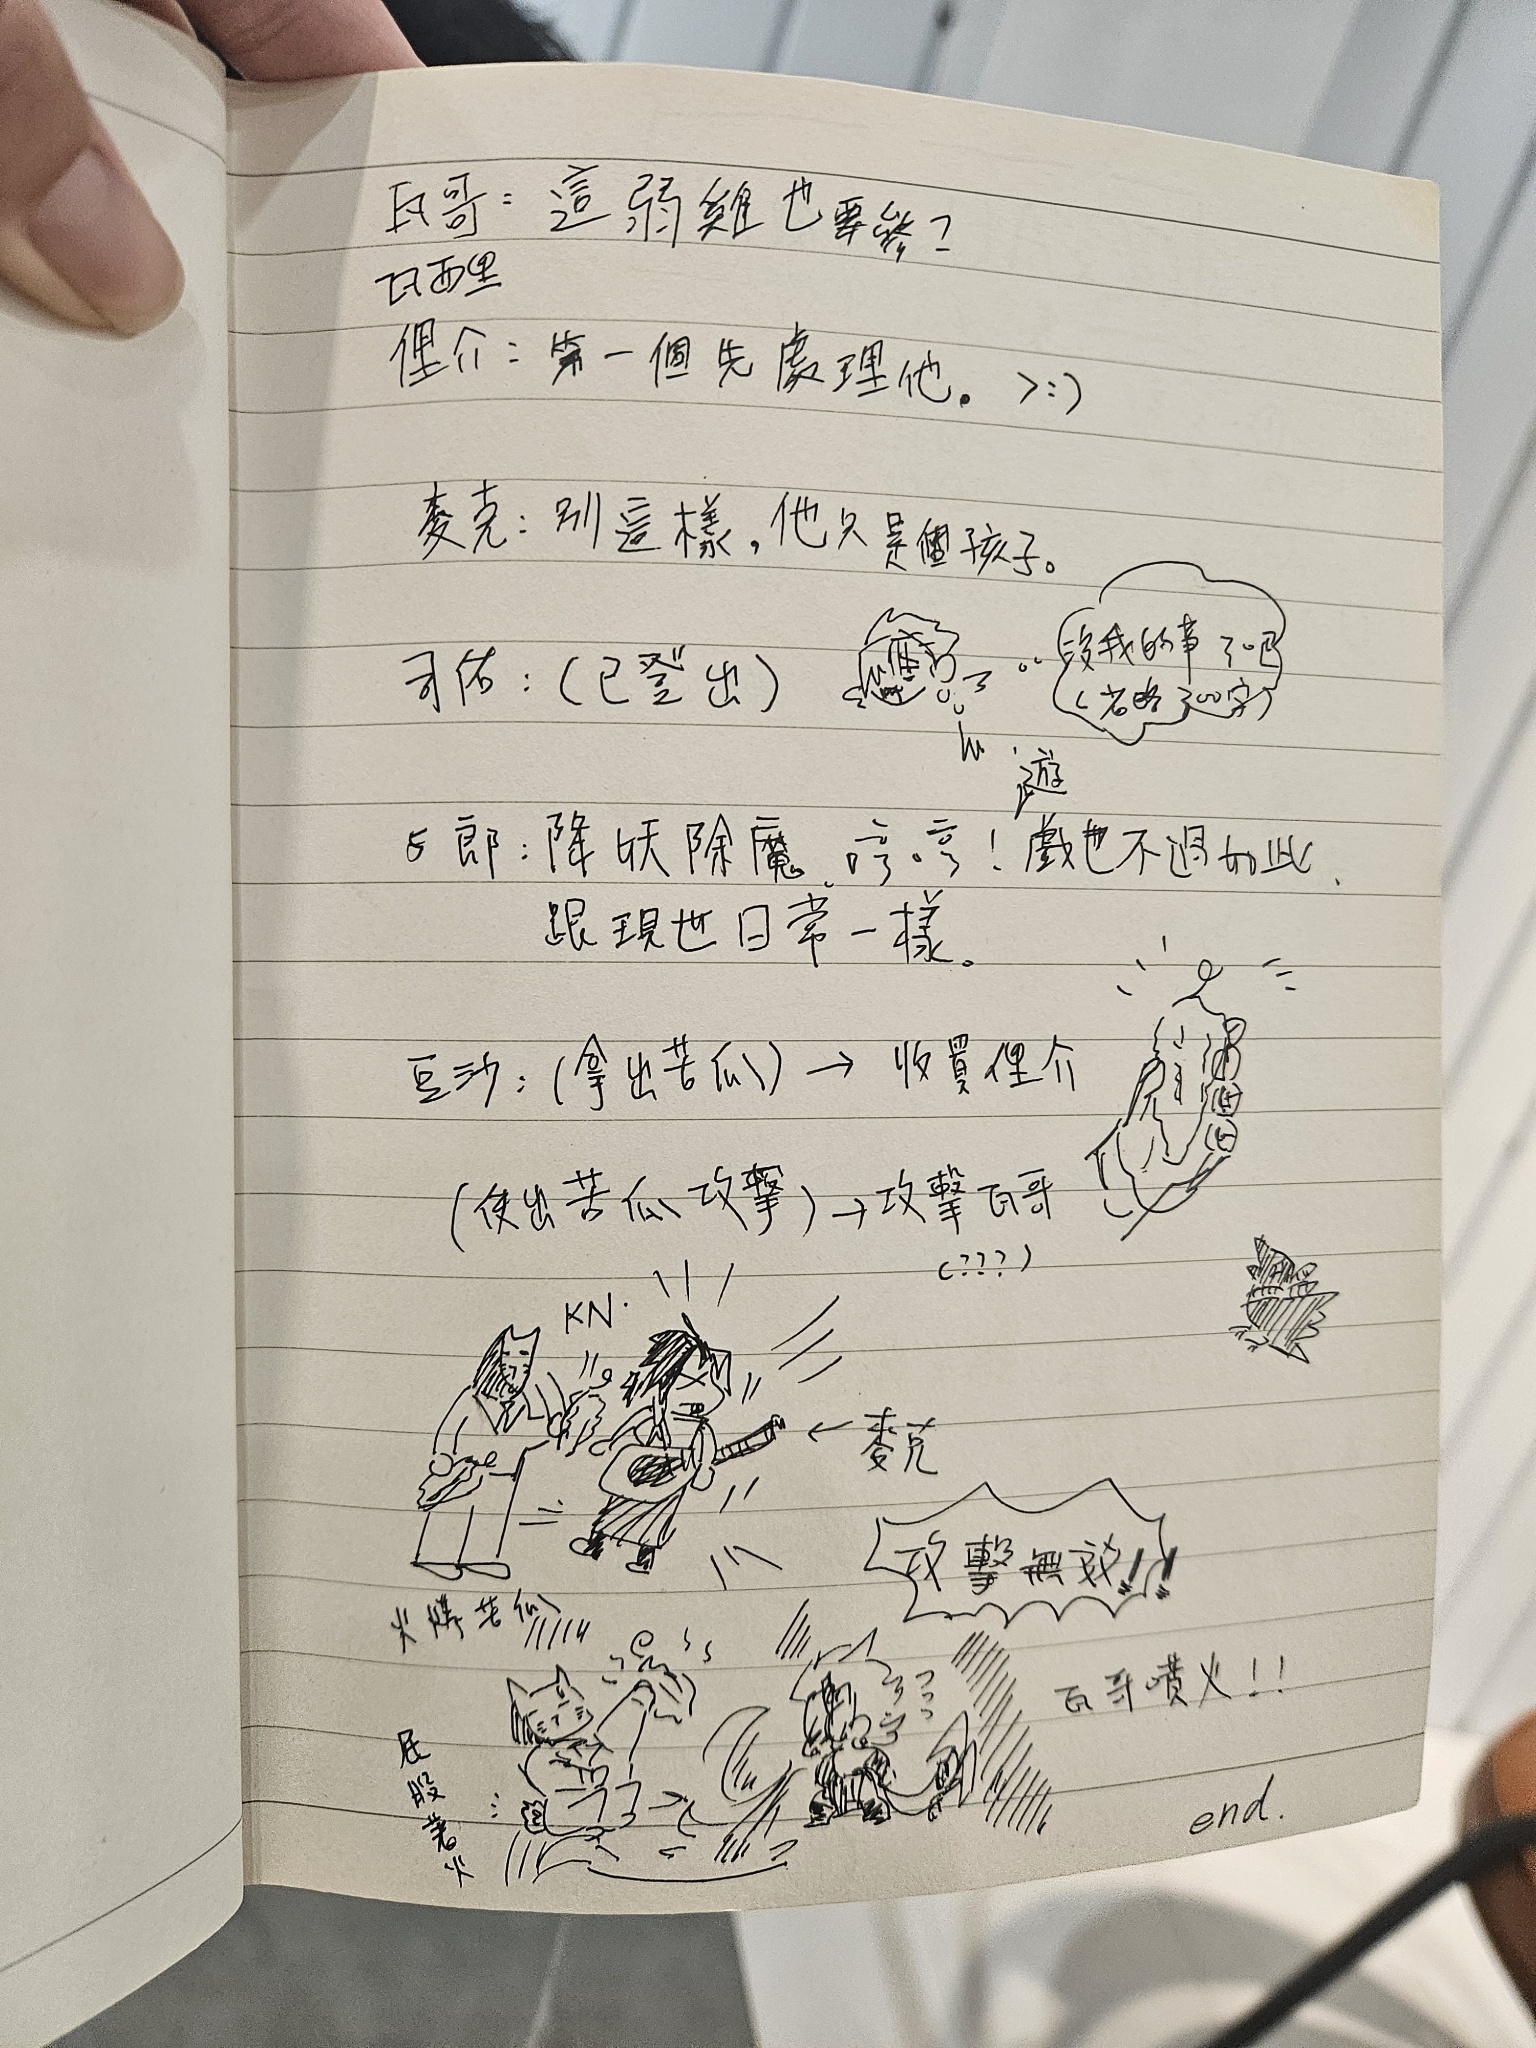 瓦哥：這弱雞也要參？
瓦西里
俚介：第一個先處理他。>:)
麥克：別這樣，他只是個孩子。
司佑：(已登出)
沒我的事了吧
(省略300字)
遊
五郎：降妖除魔、哼哼！戲也不過如此、
跟現世日常一樣。
豆沙：(拿出苦瓜)→收買俚介
(使出苦瓜攻擊)→攻擊瓦哥
(???)
KN.
←麥克
攻擊無效!!
火爆苦瓜
瓦哥噴火!!
屁股著火
end.